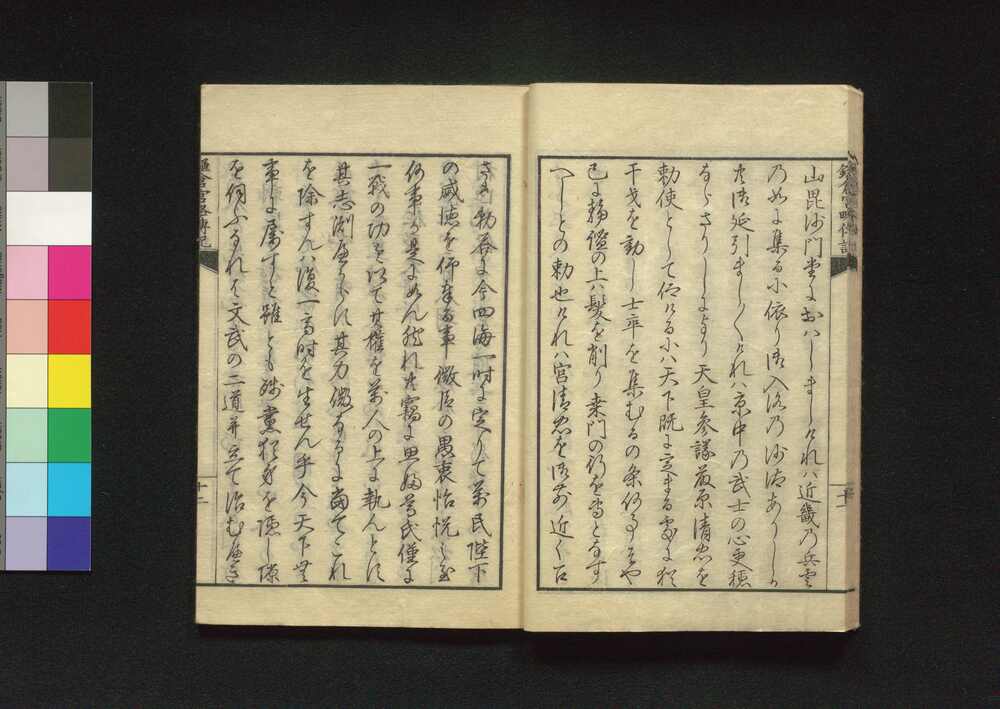 鎌倉宮略傳記
山毘沙門堂におハしましけれハ近畿乃兵雲
乃如に集る小依り御入洛乃沙汰ありしか
共御延引ましましけれハ京中乃武士の心更穏
ならさりしにより天皇参議藤原清忠を
勅使として仰ける小ハ天下既に定まる處に猶
干戈を動し士卒を集むるの条何事そや
已に静謐の上ハ髮を削り桑門の行を専となす
へしとの勅也けれハ宮清忠を御前近く召
十一
され勅答に今四海一時に定りて萬民陛下
の威徳を仰奉る事微臣の愚衷怡悦之至
何事か是にあらん然れ共竊に思ふ尊氏僅に
一戦の功を以て其權を萬人の上に執んとに
其志淵底もらに其力微なるに當てこれ
を除すんハ復一高時を生せん乎今天下無
事に屬すと雖とも殘黨猶身を隠し隙
を伺ふなれハ文武の二道并立て治むへき
鎌倉宮略傳記
十二